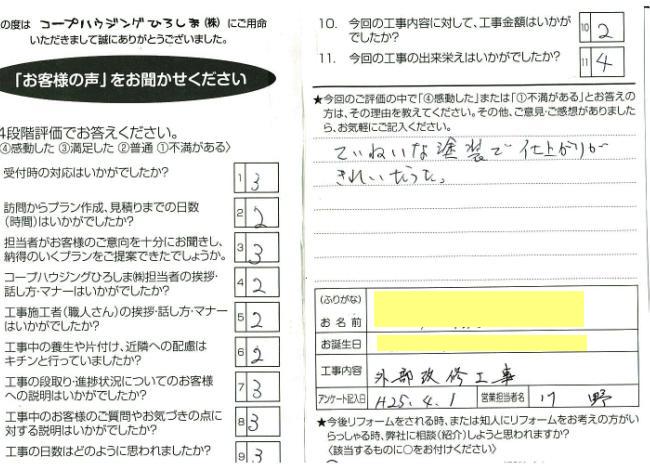 の度は コープハウジングひろしま(株) にご用命
いただきまして誠にありがとうございました。
「お客様の声」をお聞かせください
4段階評価でお答えください。
④感動した ③満足した ②普通 ①不満がある〉
受付時の対応はいかがでしたか? 1 3
訪問からプラン作成、見積りまでの日数
(時間)はいかがでしたか? 2 2
担当者がお客様のご意向を十分にお聞きし、
納得のいくプランをご提案できたでしょうか。 3 3
コープハウジングひろしま㈱担当者の挨拶・
話し方・マナーはいかがでしたか? 4 2
工事施工者(職人さん)の挨拶・話し方・マナー
はいかがでしたか? 5 2
工事中の養生や片付け、近隣への配慮は
キチンと行っていましたか? 6 2
工事の段取り・進捗状況についてのお客様
への説明はいかがでしたか? 7 3
工事中のお客様のご質問やお気づきの点に
対する説明はいかがでしたか? 8 3
工事の日数はどのように思われましたか? 9 3
10. 今回の工事内容に対して、工事金額はいかが
でしたか? 10 2
11. 今回の工事の出来栄えはいかがでしたか? 11 4
★今回のご評価の中で「④感動した」または「①不満がある」とお答えの
方は、その理由を教えてください。その他、ご意見・ご感想がありました
ら、お気軽にご記入ください。
ていねいな塗装で仕上がりが
きれいだった。
(ふりがな)
お名前
お誕生日
工事内容 外部改修工事
アンケート記入日 H25.4.1 営業担当者名 野
★今後リフォームをされる時、または知人にリフォームをお考えの方がい
らっしゃる時、弊社に相談(紹介)しようと思われますか?
〈該当するものに○をお付けください〉